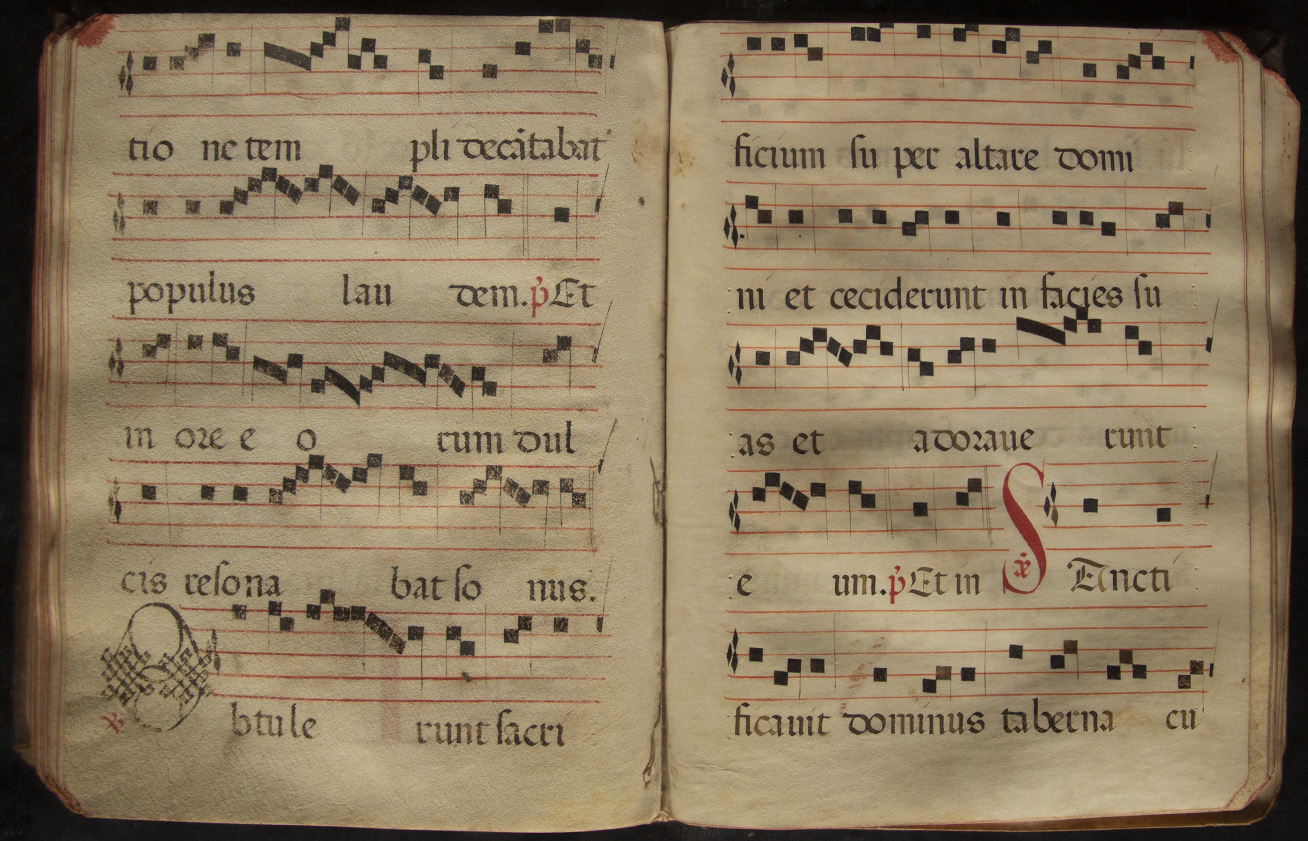 tio ne tem pli decãtabat
populus lau dem. p̃ Et
in ore e o rum dul
cis resona bat so nus.
Obtule runt sacri
ficium su per altare domi
ni et ceciderunt in facies su
as et adoraue runt
e um. p̃ Et in SAncti
ficauit dominus taberna cu